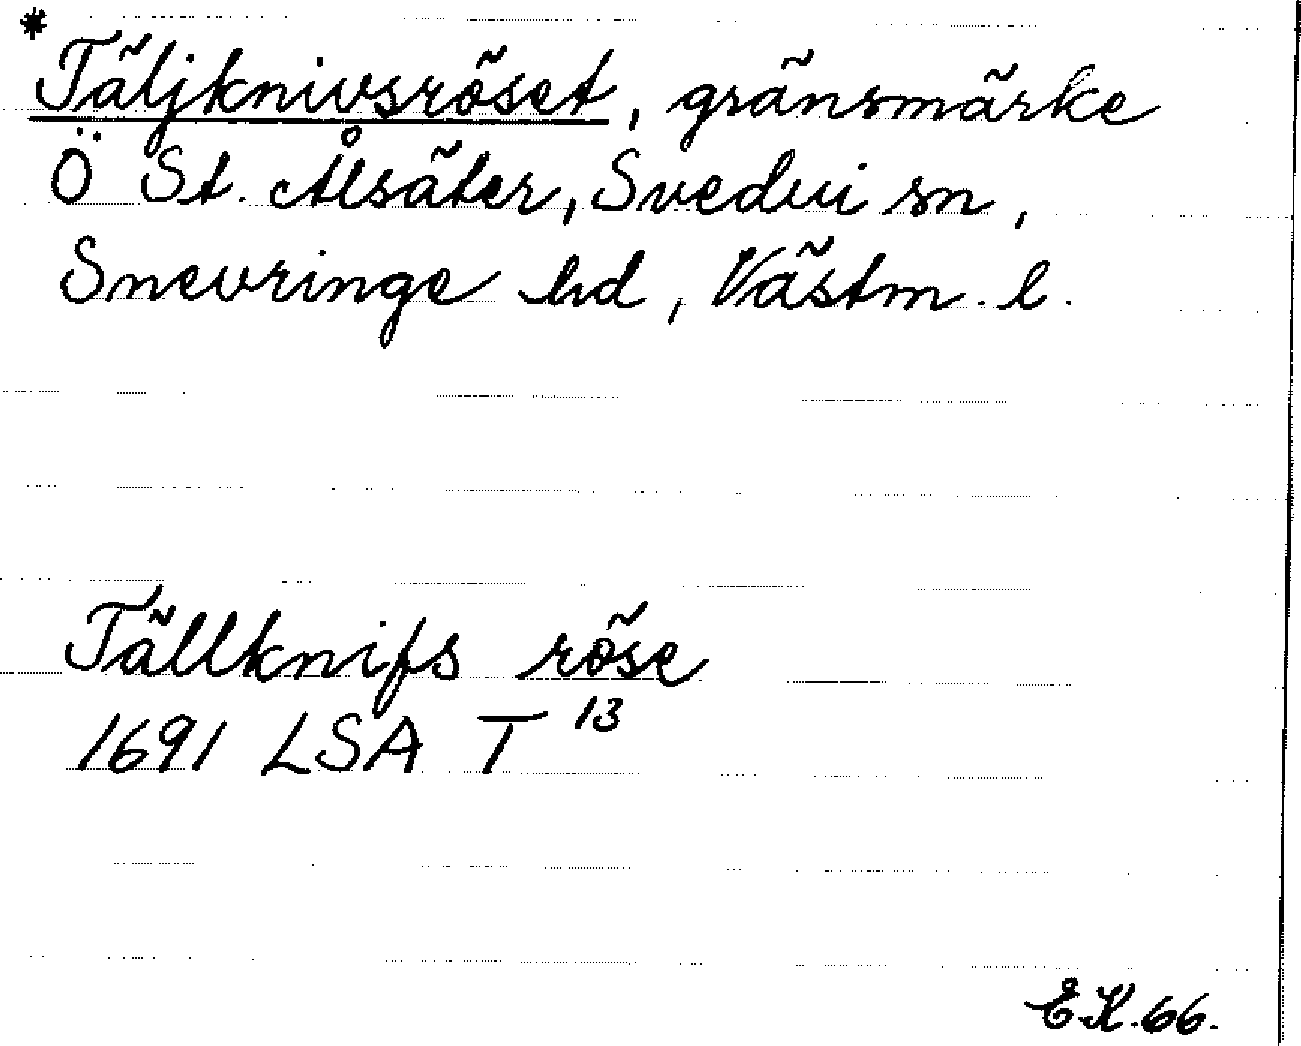 * Täljknivsröset, gränsmärke
Ö St. Ålsäter, Svedvi sn,
Snevringe hd, Västm. l.
Tällknifs röse
1691 LSA T 13
E.K. 66.